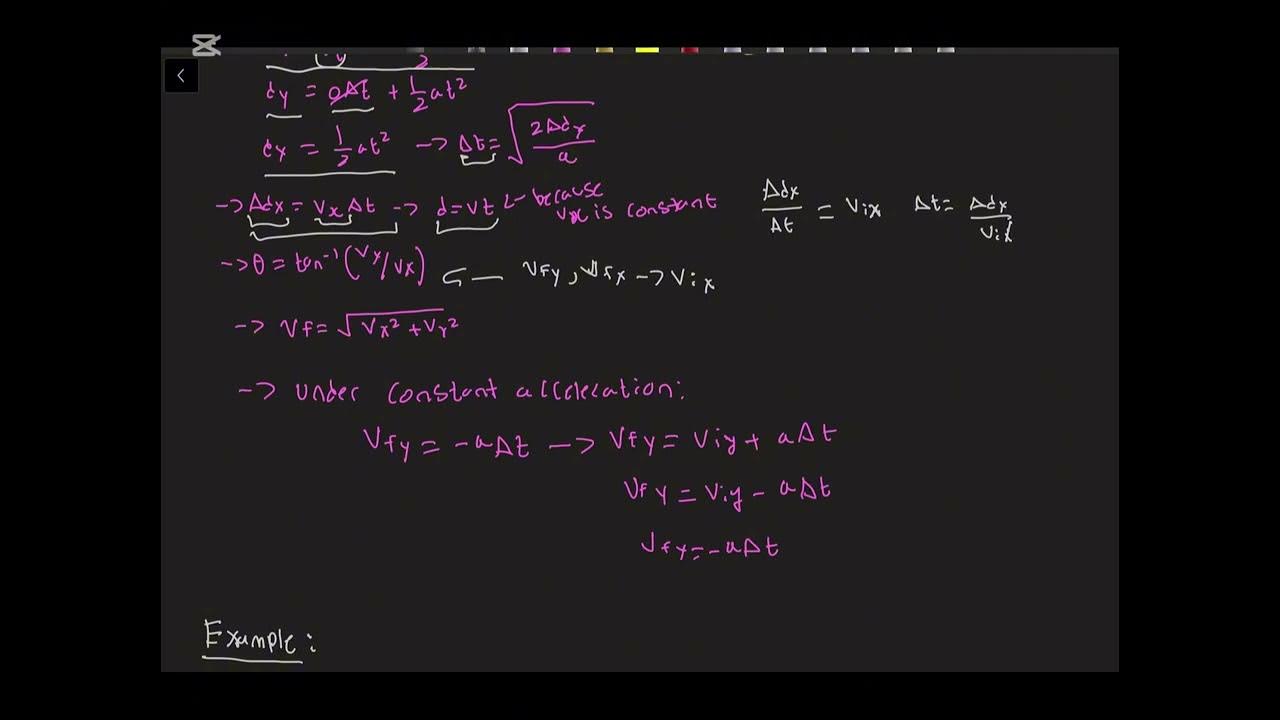 dy = 0Δt + 1/2 at²
dy = 1/2 at² -> Δt = √(2Δdy/a)
-> Δdx = Vx Δt -> d=Vt <- because Vx is constant Δdx/Δt = Vix Δt = Δdx/Vix
-> θ = tan⁻¹(Vy/Vx) <- Vfy, Vfx -> Vix
-> Vf = √(Vx² + Vy²)
-> under constant acceleration:
Vfy = -aΔt -> Vfy = Viy + aΔt
Vfy = Viy - aΔt
Vfy = -aΔt
Example: